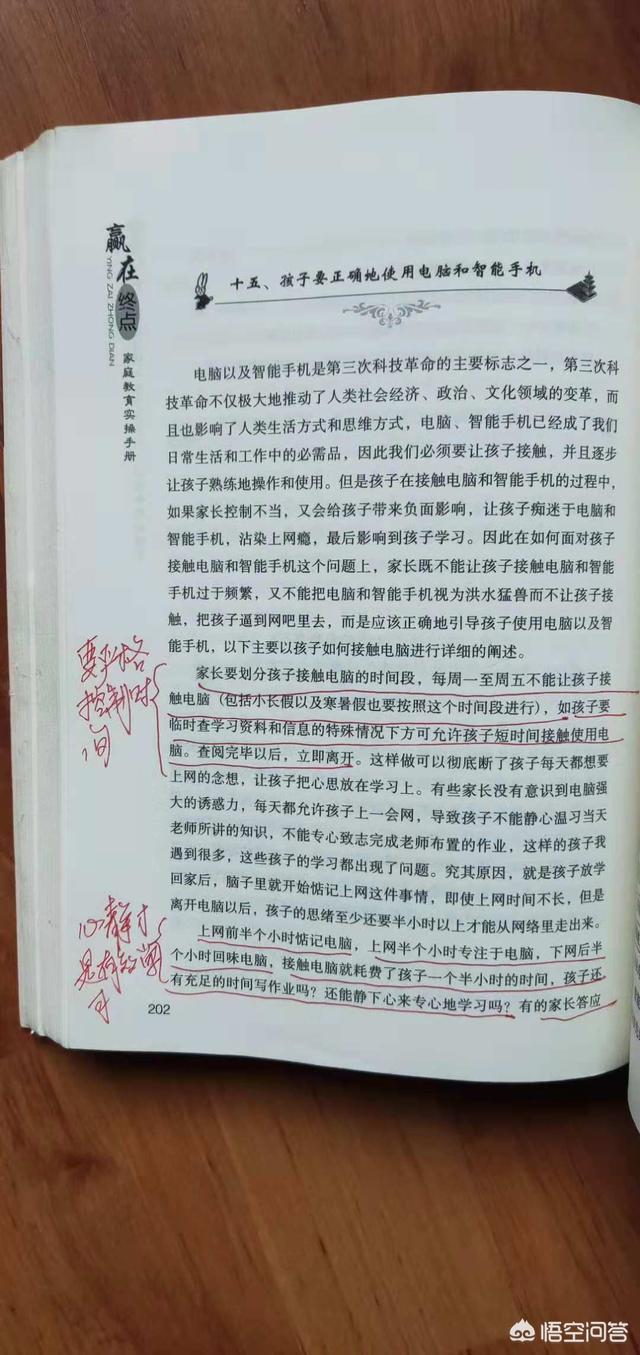 赢在终点
YING ZAI ZHONG DIAN
家庭教育实操手册
十五、孩子要正确地使用电脑和智能手机
电脑以及智能手机是第三次科技革命的主要标志之一，第三次科
技革命不仅极大地推动了人类社会经济、政治、文化领域的变革，而
且也影响了人类生活方式和思维方式，电脑、智能手机已经成了我们
日常生活和工作中的必需品，因此我们必须要让孩子接触，并且逐步
让孩子熟练地操作和使用。但是孩子在接触电脑和智能手机的过程中，
如果家长控制不当，又会给孩子带来负面影响，让孩子痴迷于电脑和
智能手机，沾染上网瘾，最后影响到孩子学习。因此在如何面对孩子
接触电脑和智能手机这个问题上，家长既不能让孩子接触电脑和智能
手机过于频繁，又不能把电脑和智能手机视为洪水猛兽而不让孩子接
触，把孩子逼到网吧里去，而是应该正确地引导孩子使用电脑以及智
能手机，以下主要以孩子如何接触电脑进行详细的阐述。
家长要划分孩子接触电脑的时间段，每周一至周五不能让孩子接
触电脑（包括小长假以及寒暑假也要按照这个时间段进行），如孩子要
临时查学习资料和信息的特殊情况下方可允许孩子短时间接触使用电
脑。查阅完毕以后，立即离开。这样做可以彻底断了孩子每天都想要
上网的念想，让孩子把心思放在学习上。有些家长没有意识到电脑强
大的诱惑力，每天都允许孩子上一会网，导致孩子不能静心温习当天
老师所讲的知识，不能专心致志完成老师布置的作业，这样的孩子我
遇到很多，这些孩子的学习都出现了问题。究其原因，就是孩子放学
回家后，脑子里就开始惦记上网这件事情，即使上网时间不长，但是
离开电脑以后，孩子的思绪至少还要半小时以上才能从网络里走出来。
上网前半个小时惦记电脑，上网半个小时专注于电脑，下网后半
个小时回味电脑，接触电脑就耗费了孩子一个半小时的时间，孩子还
有充足的时间写作业吗？还能静下心来专心地学习吗？有的家长答应
要严格
控制时
间
心静才
202
悟空问答